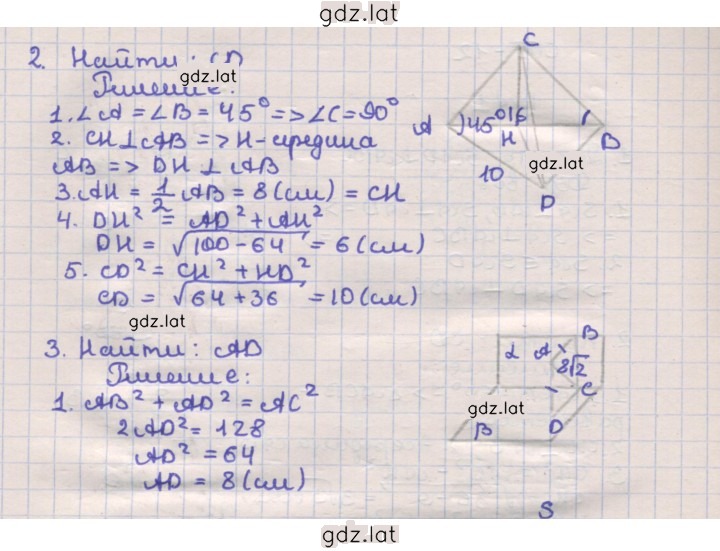 gdz.lat
2. Найти: CD
gdz.lat
Решение:
1. ∠A = ∠B = 45° => ∠C = 90°
2. CH ⊥ AB => H - средина
AB => DH ⊥ AB
3. AH = 1/2 AB = 8 (см) = CH
4. DH² = AD² + AH²
DH = √100 - 64 = 6 (см)
5. CD² = CH² + HD²
CD = √64 + 36 = 10 (см)
gdz.lat
C
A 45° 16
H
B
gdz.lat
10
D
3. Найти: AD
Решение:
1. AB² + AD² = AC²
2AD² = 128
AD² = 64
AD = 8 (см)
B
α A
8√2
C
gdz.lat
β D
S
gdz.lat